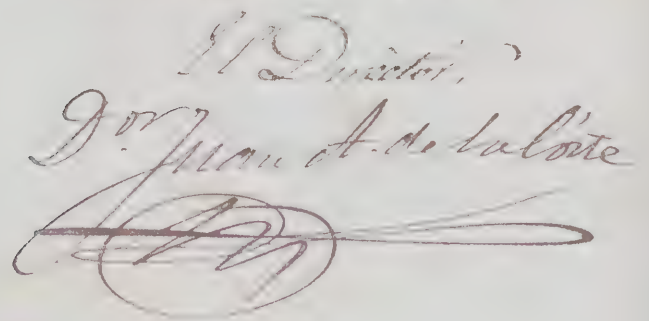 El Director,
Dor. Juan A. de la Corte